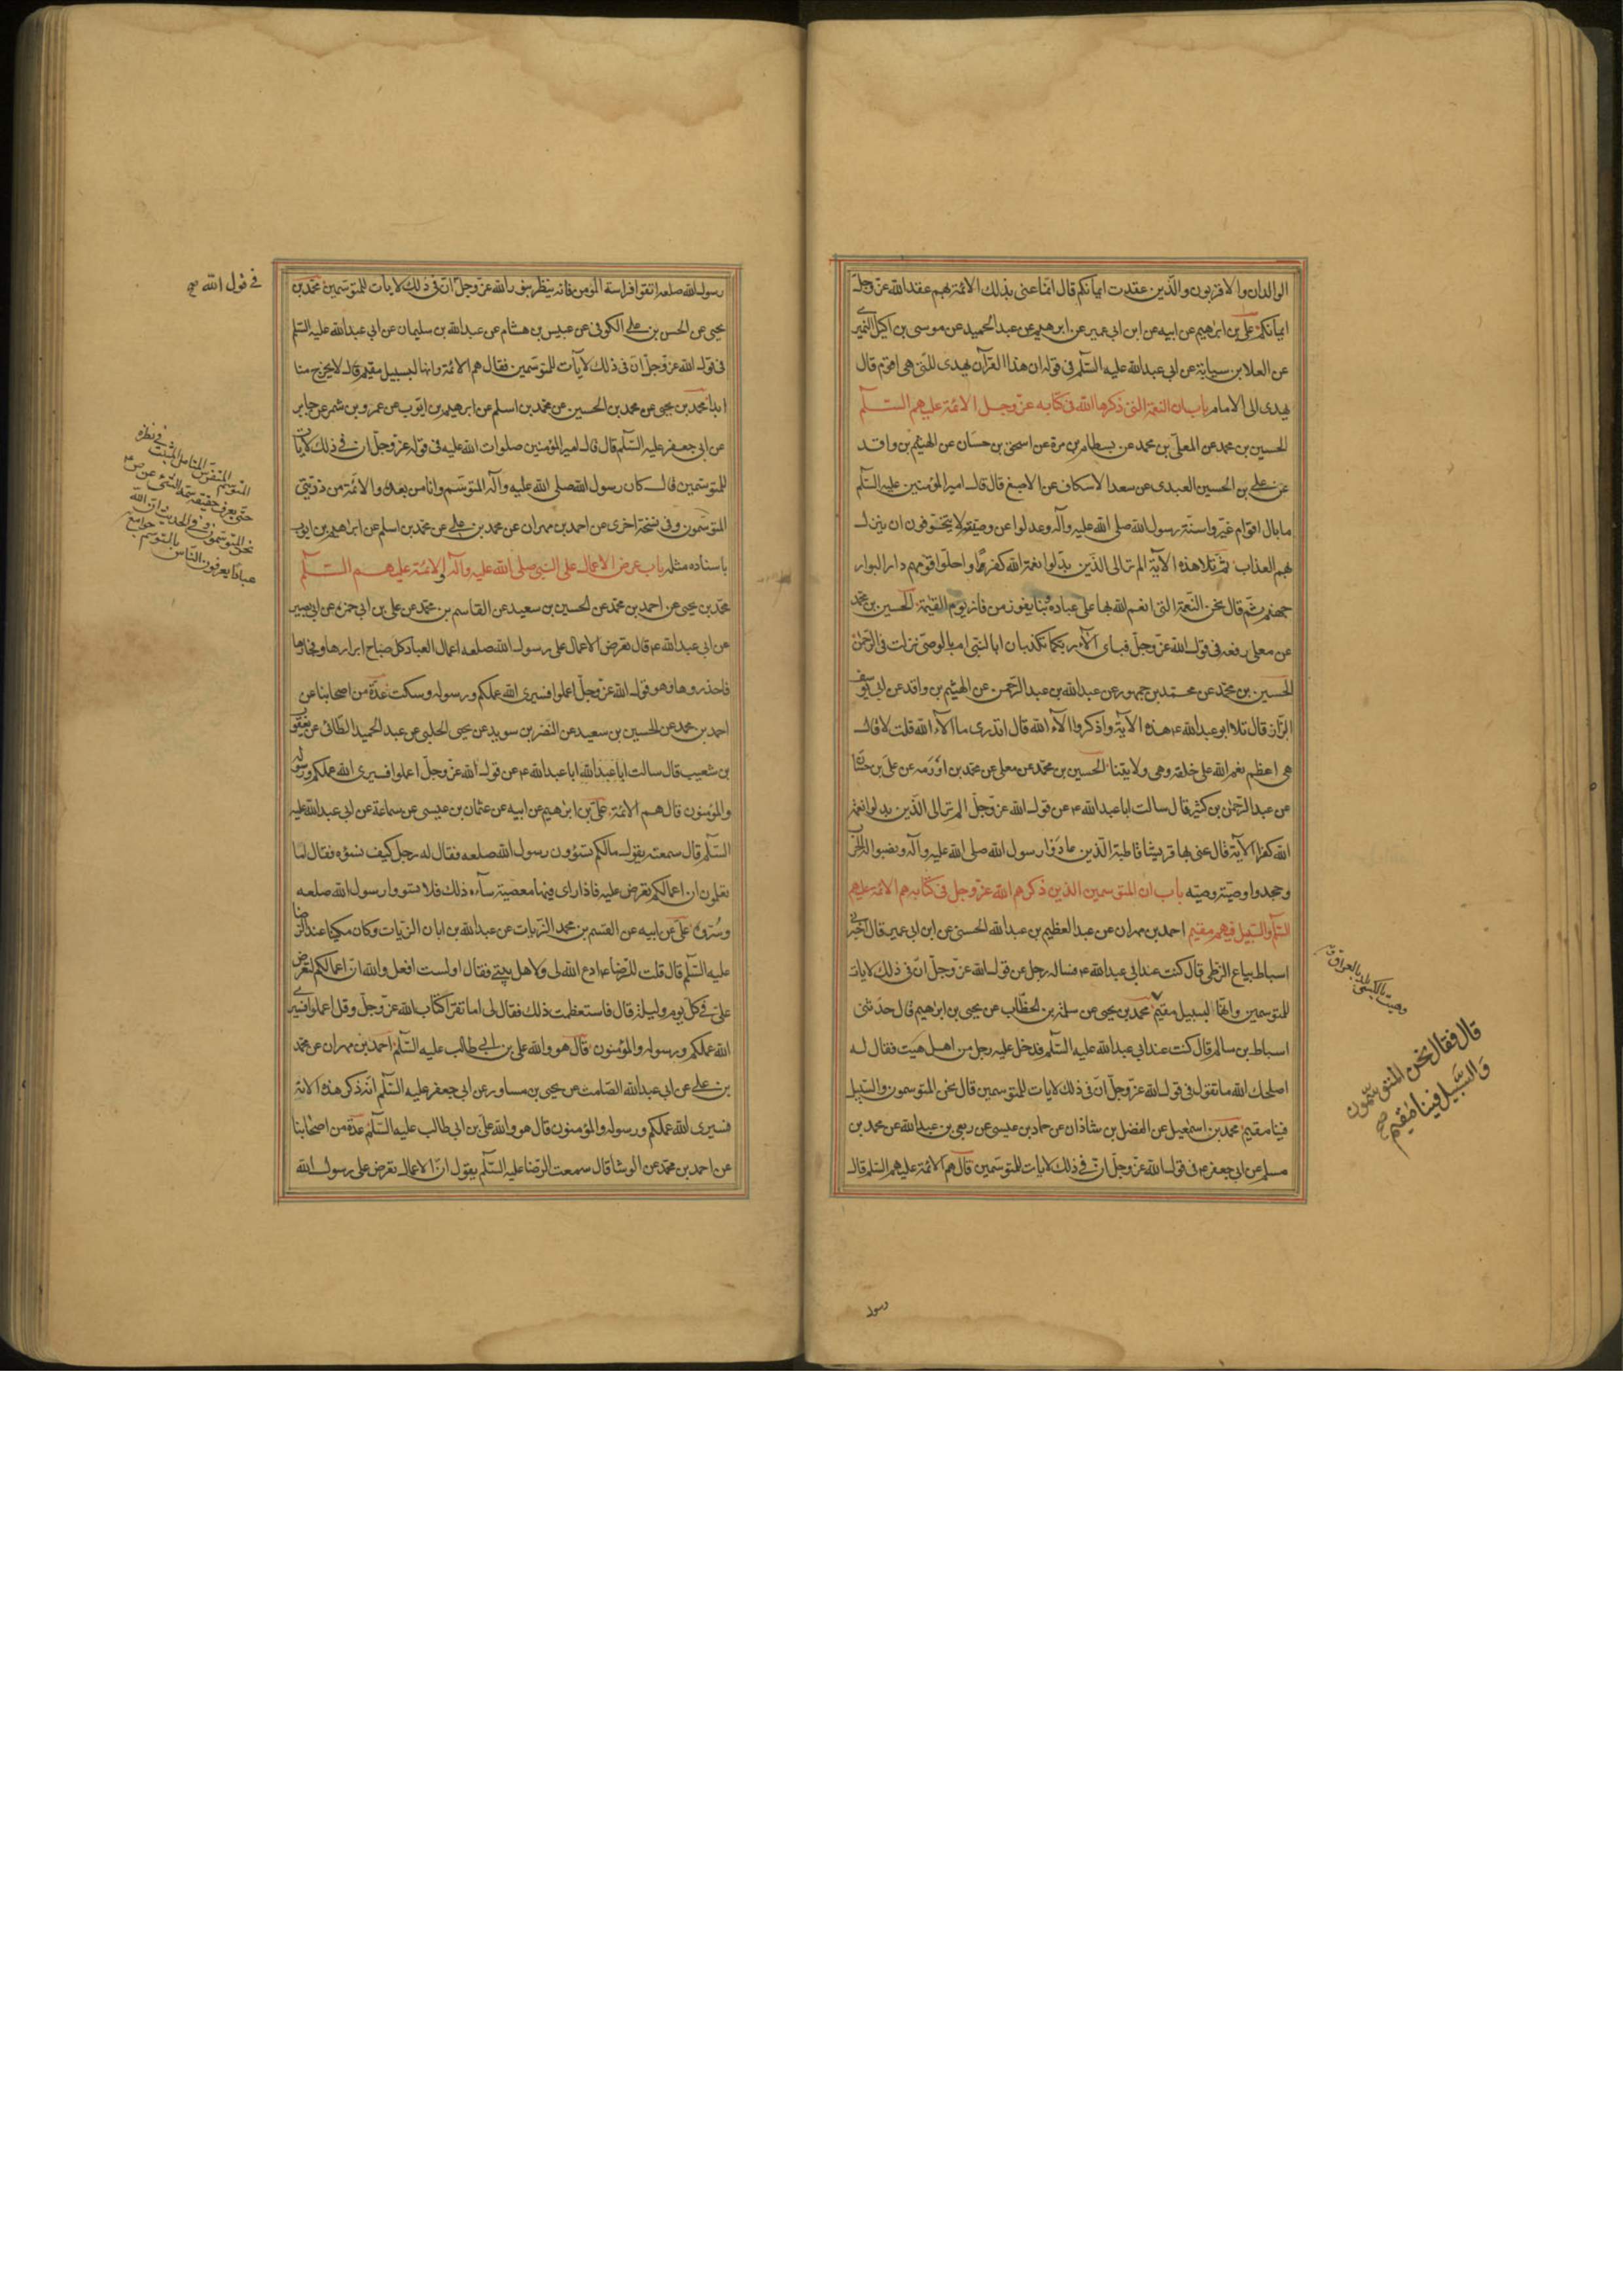 الوالدان والاقربون والذين عقدت ايمانكم قال انما عنى بذلك الائمة بهم عقد الله عز وجل
ايمانكم علي بن ابرهيم عن ابيه عن ابن ابي عمير عن ابرهيم بن عبد الحميد عن موسى بن اكيل النميري
عن العلا بن سيابة عن ابي عبد الله عليه السلم في قوله ان هذا القرآن يهدى للتي هي اقوم قال
يهدى الى الامام باب ان النعمة التي ذكرها الله في كتابه عز وجل الائمة عليهم السلم
الحسين بن محمد عن المعلى بن محمد عن بسطام بن مرة عن اسحق بن حسان عن الهيثم بن واقد
عن علي بن الحسين العبدى عن سعد الاسكاف عن الاصبغ قال قال امير المؤمنين عليه السلم
ما بال اقوام غيروا سنة رسول الله صلى الله عليه وآله وعدلوا عن وصيته لا يتخوفون ان ينزل
بهم العذاب ثم تلا هذه الآية الم تر الى الذين بدلوا نعمة الله كفرا واحلوا قومهم دار البوار
جهنم ثم قال نحن النعمة التي انعم الله بها على عباده وبنا يفوز من فاز يوم القيمة الحسين بن محمد
عن معلى رفعه في قول الله عز وجل فباى آلاء ربكما تكذبان ابالنبي ام بالوصي نزلت في الرحمن
الحسين بن محمد عن محمد بن جمهور عن عبد الله بن عبد الرحمن عن الهيثم بن واقد عن ابي يوسف
البزاز قال تلا ابو عبد الله ع هذه الآية واذكروا آلاء الله قال اتدرى ما آلاء الله قلت لا قال
هي اعظم نعم الله على خلقه وهي ولايتنا الحسين بن محمد عن معلى عن محمد بن اورمه عن علي بن حسان
عن عبد الرحمن بن كثير قال سالت ابا عبد الله ع عن قول الله عز وجل الم تر الى الذين بدلوا نعمة
الله كفرا الآية قال عنى بها قريشا قاطبة الذين عادوا رسول الله صلى الله عليه وآله ونصبوا له الحرب
وجحدوا وصية وصيه باب ان المتوسمين الذين ذكرهم الله عز وجل في كتابه هم الائمة عليهم
السلم والسبيل فيهم مقيم احمد بن مهران عن عبد العظيم بن عبد الله الحسني عن ابن ابي عمير قال اخبرني
اسباط بياع الزطي قال كنت عند ابي عبد الله ع فساله رجل عن قول الله عز وجل ان في ذلك لايات
للمتوسمين وانها لبسبيل مقيم محمد بن يحيى عن سلمة بن الخطاب عن يحيى بن ابرهيم قال حدثنى
اسباط بن سالم قال كنت عند ابي عبد الله عليه السلم فدخل عليه رجل من اهل هيت فقال له
اصلحك الله ما تقول في قول الله عز وجل ان في ذلك لايات للمتوسمين قال نحن المتوسمون والسبيل
فينا مقيم محمد بن اسمعيل عن الفضل بن شاذان عن حماد بن عيسى عن ربعي بن عبد الله عن محمد بن
مسلم عن ابي جعفر ع في قول الله عز وجل ان في ذلك لايات للمتوسمين قال هم الائمة عليهم السلم قال
هيت بالكسر بلد بالعراق ق
قال فقال نحن المتوسمون
والسبيل فينا مقيم صح
رسول
رسول الله صلعه اتقوا فراسة المؤمن فانه ينظر بنور الله عز وجل ان في ذلك لايات للمتوسمين محمد بن
يحيى عن الحسن بن علي الكوفى عن عبيس بن هشام عن عبد الله بن سليمان عن ابي عبد الله عليه السلم
في قول الله عز وجل ان في ذلك لآيات للمتوسمين فقال هم الائمة وانها لبسبيل مقيم قال لا يخرج منا
ابدا محمد بن يحيى عن محمد بن الحسين عن محمد بن اسلم عن ابرهيم بن ايوب عن عمرو بن شمر عن جابر
عن ابي جعفر عليه السلم قال قال امير المؤمنين صلوات الله عليه في قوله عز وجل ان في ذلك لآيات
للمتوسمين قال كان رسول الله صلى الله عليه وآله المتوسم وانا من بعده والائمة من ذريتي
المتوسمون وفي نسخة اخرى عن احمد بن مهران عن محمد بن علي عن محمد بن اسلم عن ابرهيم بن ايوب
باسناده مثله باب عرض الاعمال على النبي صلى الله عليه وآله والائمة عليهم السلم
محمد بن يحيى عن احمد بن محمد عن الحسين بن سعيد عن القاسم بن محمد عن علي بن ابي حمزه عن ابي بصير
عن ابي عبد الله ع قال تعرض الاعمال على رسول الله صلعه اعمال العباد كل صباح ابرارها وفجارها
فاحذروها وهو قول الله عز وجل اعملوا فسيرى الله عملكم ورسوله وسكت عدة من اصحابنا عن
احمد بن محمد عن الحسين بن سعيد عن النضر بن سويد عن يحيى الحلبي عن عبد الحميد الطائى عن يعقوب
بن شعيب قال سالت ابا عبد الله ابا عبد الله ع عن قول الله عز وجل اعملوا فسيرى الله عملكم ورسوله
والمؤمنون قال هم الائمة علي بن ابرهيم عن ابيه عن عثمان بن عيسى عن سماعة عن ابي عبد الله عليه
السلم قال سمعته يقول مالكم تسؤون رسول الله صلعه فقال له رجل كيف نسؤه فقال اما
تعلمون ان اعمالكم تعرض عليه فاذا راى فيها معصية سآءه ذلك فلا تسووا رسول الله صلعه
وسروه علي عن ابيه عن القسم بن محمد الزيات عن عبد الله بن ابان الزيات وكان مكينا عند الرضا
عليه السلم قال قلت للرضا ع ادع الله لى ولاهل بيتي فقال اولست افعل والله ان اعمالكم لتعرض
علي في كل يوم وليلة قال فاستعظمت ذلك فقال لى اما تقرأ كتاب الله عز وجل وقل اعملوا فسيرى
الله عملكم ورسوله والمؤمنون قال هو والله علي بن ابي طالب عليه السلم احمد بن مهران عن محمد
بن علي عن ابي عبد الله الصامت عن يحيى بن مساور عن ابي جعفر عليه السلم انه ذكر هذه الاية
فسيرى الله عملكم ورسوله والمؤمنون قال هو والله علي بن ابي طالب عليه السلم عدة من اصحابنا
عن احمد بن محمد عن الوشا قال سمعت الرضا عليه السلم يقول ان الاعمال تعرض على رسول الله
في قول الله صح
المتوسم المتفرس المتامل المتثبت في نظره
حتى يعرف حقيقة سمة الشئ
نحن المتوسمون وفي الحديث ان لله
عبادا يعرفون الناس بالتوسم جوامع